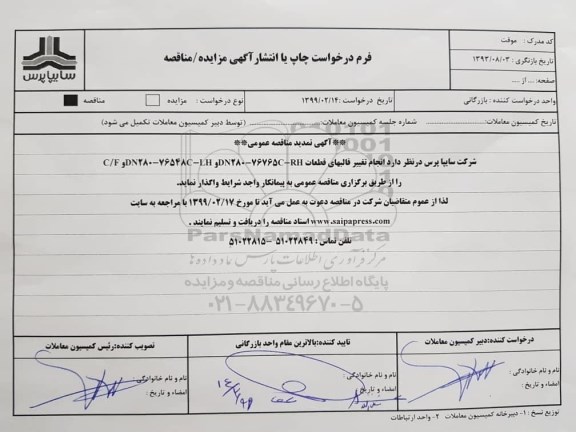 سایپا پرس
فرم درخواست چاپ یا انتشار آگهی مزایده/مناقصه
کد مدرک : موقت
تاریخ بازنگری : ۱۳۹۳/۰۸/۰۳
صفحه: ... از ...
واحد درخواست کننده : بازرگانی
تاریخ درخواست : ۱۳۹۹/۰۲/۱۴
نوع درخواست : مزایده مناقصه
تاریخ کمیسیون معاملات: شماره جلسه کمیسیون معاملات: (توسط دبیر کمیسیون معاملات تکمیل می شود)
**آگهی تمدید مناقصه عمومی**
شرکت سایپا پرس درنظر دارد انجام تغییر قالبهای قطعات DN۲۸۰-۷۶۷۶۵C-RH و DN۲۸۰-۷۶۵۴۸C-LH و C/F
را از طریق برگزاری مناقصه عمومی به پیمانکار واجد شرایط واگذار نماید.
لذا از عموم متقاضیان شرکت در مناقصه دعوت به عمل می آید تا مورخ ۱۳۹۹/۰۲/۱۷ با مراجعه به سایت
www.saipapress.com اسناد مناقصه را دریافت و تسلیم نمایند .
تلفن تماس : ۵۱۰۲۲۸۴۹ - ۵۱۰۲۲۸۱۵
ParsNamadData
مرکز فرآوری اطلاعات پارس نماد داده ها
پایگاه اطلاع رسانی مناقصه و مزایده
۰۲۱-۸۸۳۴۹۶۷۰-۵
درخواست کننده:دبیر کمیسیون معاملات
نام و نام خانوادگی :
امضاء و تاریخ :
تایید کننده:بالاترین مقام واحد بازرگانی
نام و نام خانوادگی :
امضاء و تاریخ :
تصویب کننده:رئیس کمیسیون معاملات
نام و نام خانوادگی :
امضاء و تاریخ :
توزیع نسخ : ۱- دبیرخانه کمیسیون معاملات ۲- واحد ارتباطات